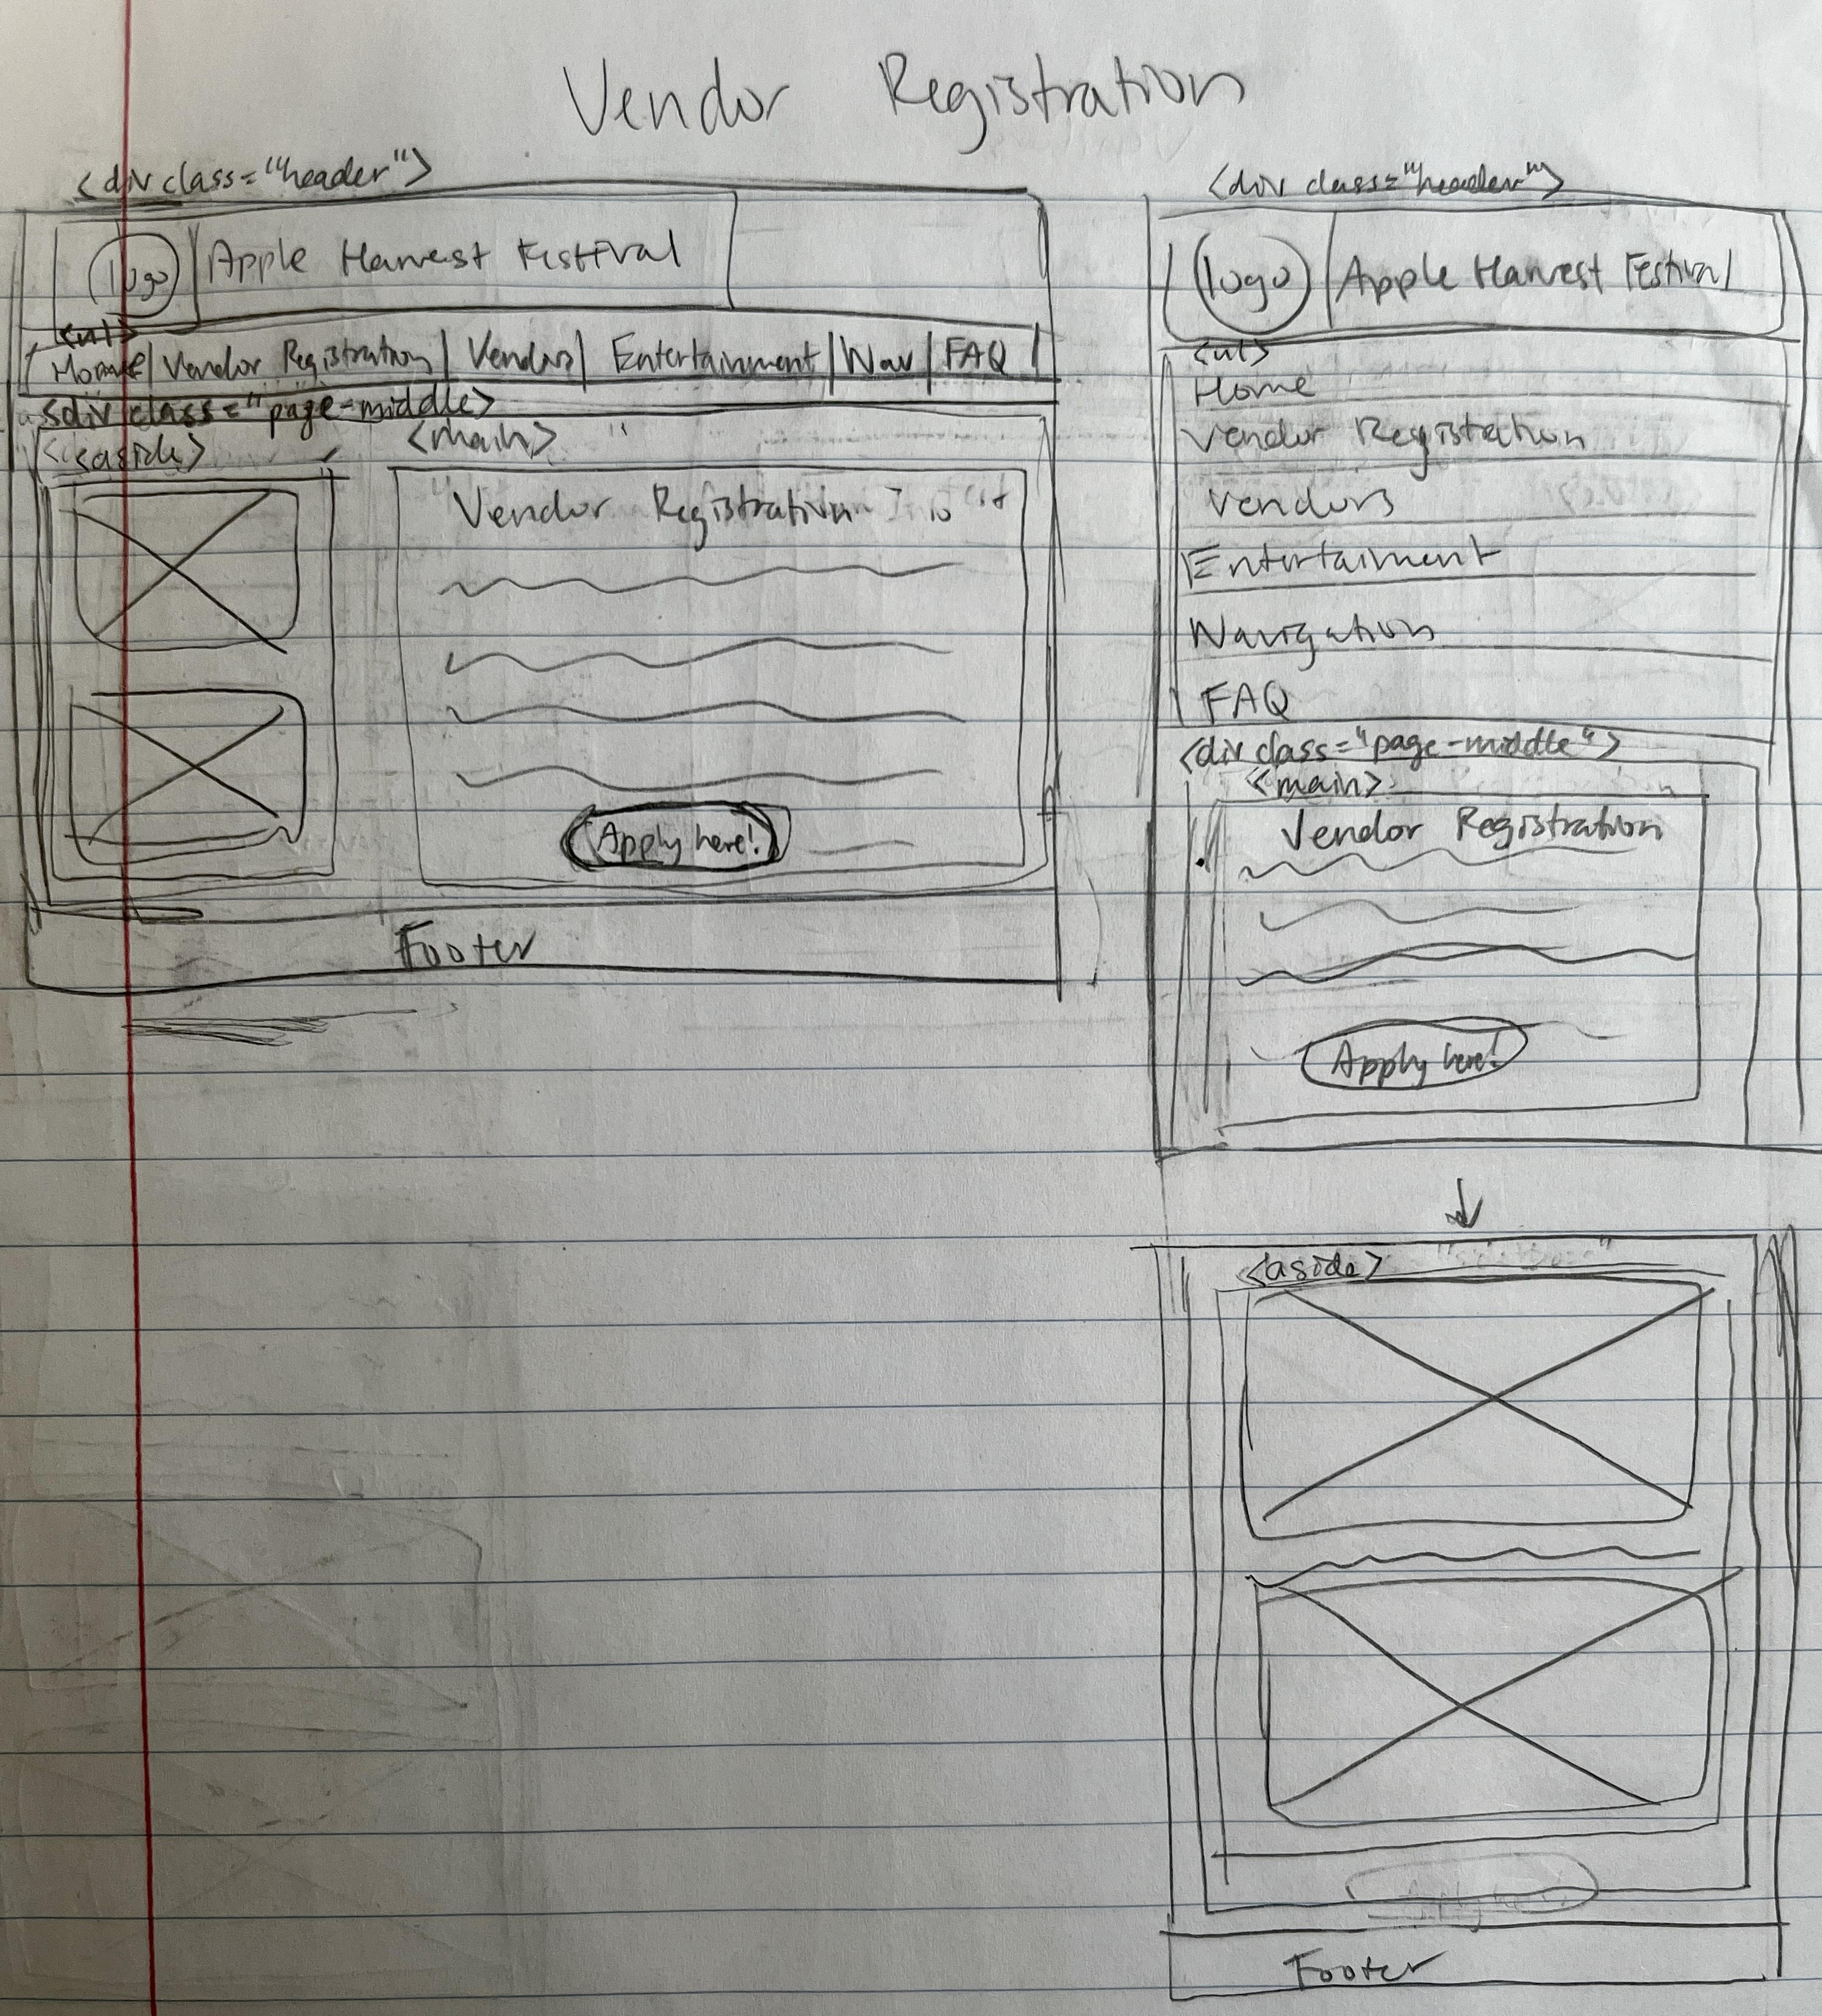 Vendor Registration
<div class="header">
logo Apple Harvest Festival
<ul>
Home | Vendor Registration | Vendors | Entertainment | Nav | FAQ
<div class="page-middle>
<aside>
<main>
Vendor Registration
Apply here!
Footer
<div class="header">
logo Apple Harvest Festival
<ul>
Home
Vendor Registration
Vendors
Entertaiment
Navigation
FAQ
<div class="page-middle">
<main>
Vendor Registration
Apply here!
<aside>
Footer